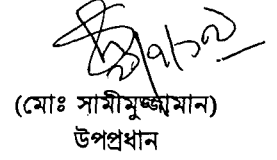 (মোঃ সামীমুজ্জামান)
উপপ্রধান